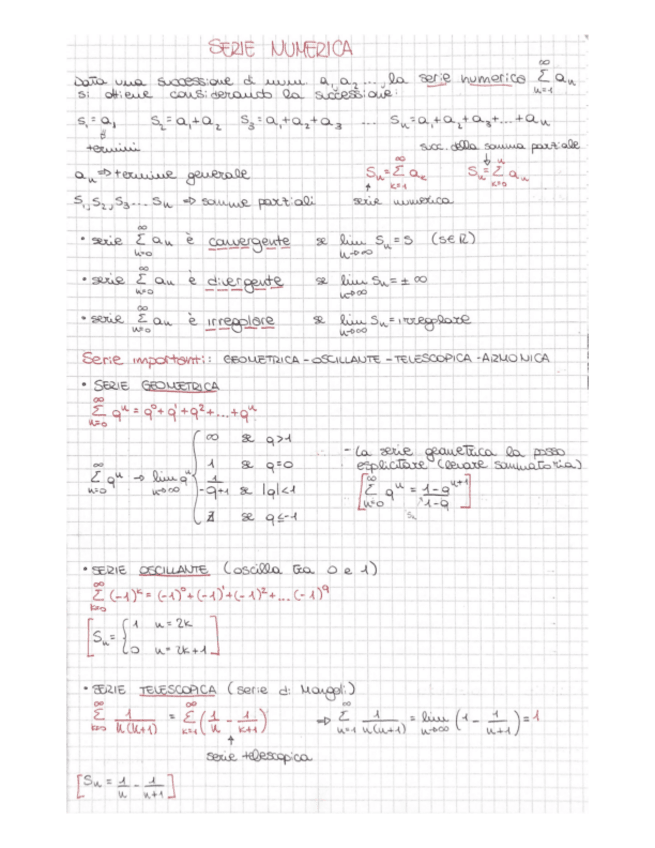 SERIE NUMERICA
Data una successione di num. a₁, a₂ ..., la serie numerica ∑_{n=1}^{∞} aₙ
si ottiene considerando la successione:
S₁ = a₁   S₂ = a₁+a₂   S₃ = a₁+a₂+a₃   ...   Sₙ = a₁+a₂+a₃+...+aₙ
termini   succ. della somma parziale
aₙ ⇒ termine generale   Sₙ = ∑_{k=1}^{∞} aₖ   Sₙ = ∑_{k=0}^{n} aₙ
S₁, S₂, S₃ ... Sₙ ⇒ somme parziali   serie numerica
• serie ∑_{n=0}^{∞} aₙ è convergente se lim_{n→∞} Sₙ = S (S∈ℝ)
• serie ∑_{n=0}^{∞} aₙ è divergente se lim_{n→∞} Sₙ = ± ∞
• serie ∑_{n=0}^{∞} aₙ è irregolare se lim_{n→∞} Sₙ = irregolare
Serie importanti: GEOMETRICA - OSCILLANTE - TELESCOPICA - ARMONICA
• SERIE GEOMETRICA
∑_{n=0}^{∞} qⁿ = q⁰ + q¹ + q² + ... + qⁿ
∞ se q>1
∑_{n=0}^{∞} qⁿ → lim_{n→∞} qⁿ { 1 se q=0
1/(-q+1) se |q|<1
∄ se q≤-1
- La serie geometrica la posso
esplicitare (levare sommatoria)
[∑_{n=0}^{∞} qⁿ = (1-q^{n+1})/(1-q)]
Sₙ
• SERIE OSCILLANTE (oscilla tra 0 e 1)
∑_{k=0}^{∞} (-1)^k = (-1)⁰ + (-1)¹ + (-1)² + ... (-1)⁹
[Sₙ = { 1 n=2k
0 n=2k+1 ]
• SERIE TELESCOPICA (serie di Mengoli)
∑_{k=0}^{∞} 1/(n(n+1)) = ∑_{k=1}^{∞} (1/n - 1/(k+1)) ⇒ ∑_{n=1}^{∞} 1/(n(n+1)) = lim_{n→∞} (1 - 1/(n+1)) = 1
serie telescopica
[Sₙ = 1/n - 1/(n+1)]